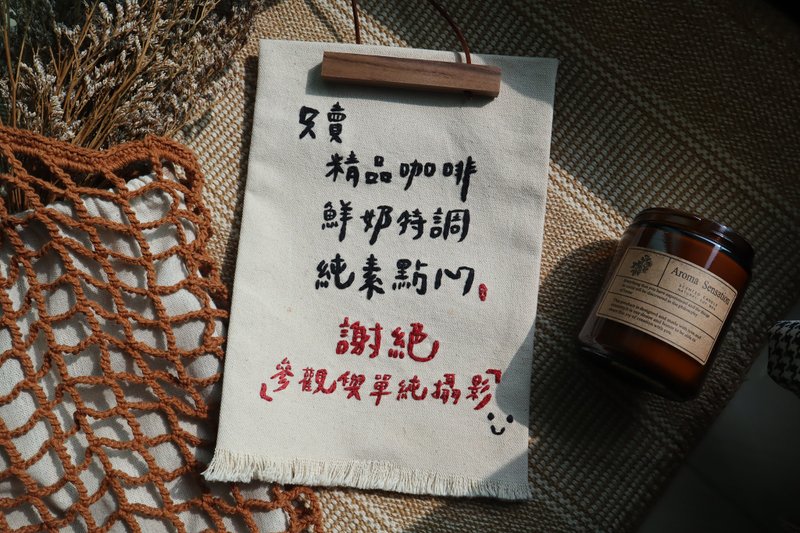 只賣
精品咖啡
鮮奶特調
純素點心。
謝絕
「參觀與單純攝影」
Aroma Sensation
SCENTED CANDLE